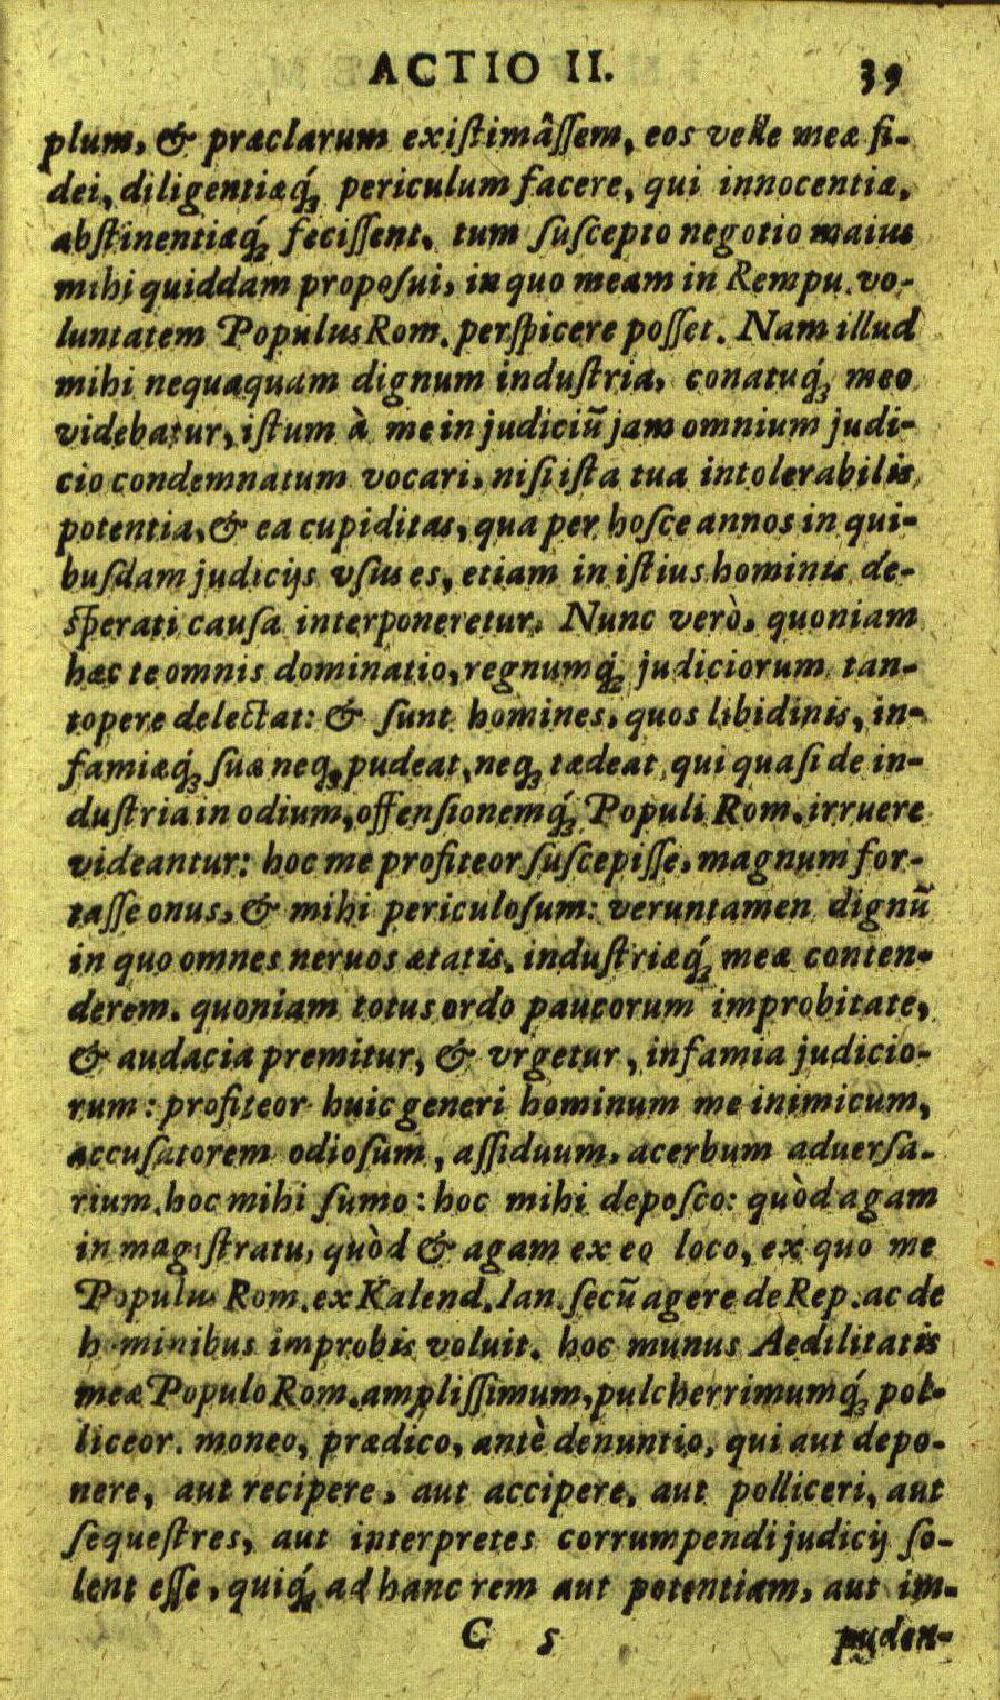 ACTIO II. 39
plum, & præclarum existimâssem, eos velle meæ fi-
dei, diligentiæq́; periculum facere, qui innocentiæ,
abstinentiæq́; fecissent. tum suscepto negotio maius
mihi quiddam proposui, in quo meam in Rempu. vo-
luntatem Populus Rom. perspicere posset. Nam illud
mihi nequaquam dignum industria, conatuq́; meo
videbatur, istum à me in judiciũ jam omnium judi-
cio condemnatum vocari, nisi ista tua intolerabilis
potentia, & ea cupiditas, qua per hosce annos in qui-
busdam judicijs vsus es, etiam in istius hominis de-
sperati causa interponeretur. Nunc verò, quoniam
hæc te omnis dominatio, regnumq́; judiciorum tan-
topere delectat: & sunt homines, quos libidinis, in-
famiæq́; suæ neq; pudeat, neq; tædeat, qui quasi de in-
dustria in odium, offensionemq́; Populi Rom. irruere
videantur: hoc me profiteor suscepisse, magnum for-
tasse onus, & mihi periculosum: veruntamen dignũ
in quo omnes neruos ætatis, industriæq́; meæ conten-
derem. quoniam totus ordo paucorum improbitate,
& audacia premitur, & vrgetur, infamia judicio-
rum: profiteor huic generi hominum me inimicum,
accusatorem odiosum, assiduum, acerbum aduersa-
rium. hoc mihi sumo: hoc mihi deposco: quòd agam
in magistratu, quòd & agam ex eo loco, ex quo me
Populus Rom. ex Kalend. Ian. secũ agere de Rep. ac de
hominibus improbis voluit. hoc munus Aedilitatis
meæ Populo Rom. amplissimum, pulcherrimumq́; pol-
liceor. moneo, prædico, antè denuntio, qui aut depo-
nere, aut recipere, aut accipere, aut polliceri, aut
sequestres, aut interpretes corrumpendi judicij so-
lent esse, quiq́; ad hanc rem aut potentiam, aut im-
C 5 puden-